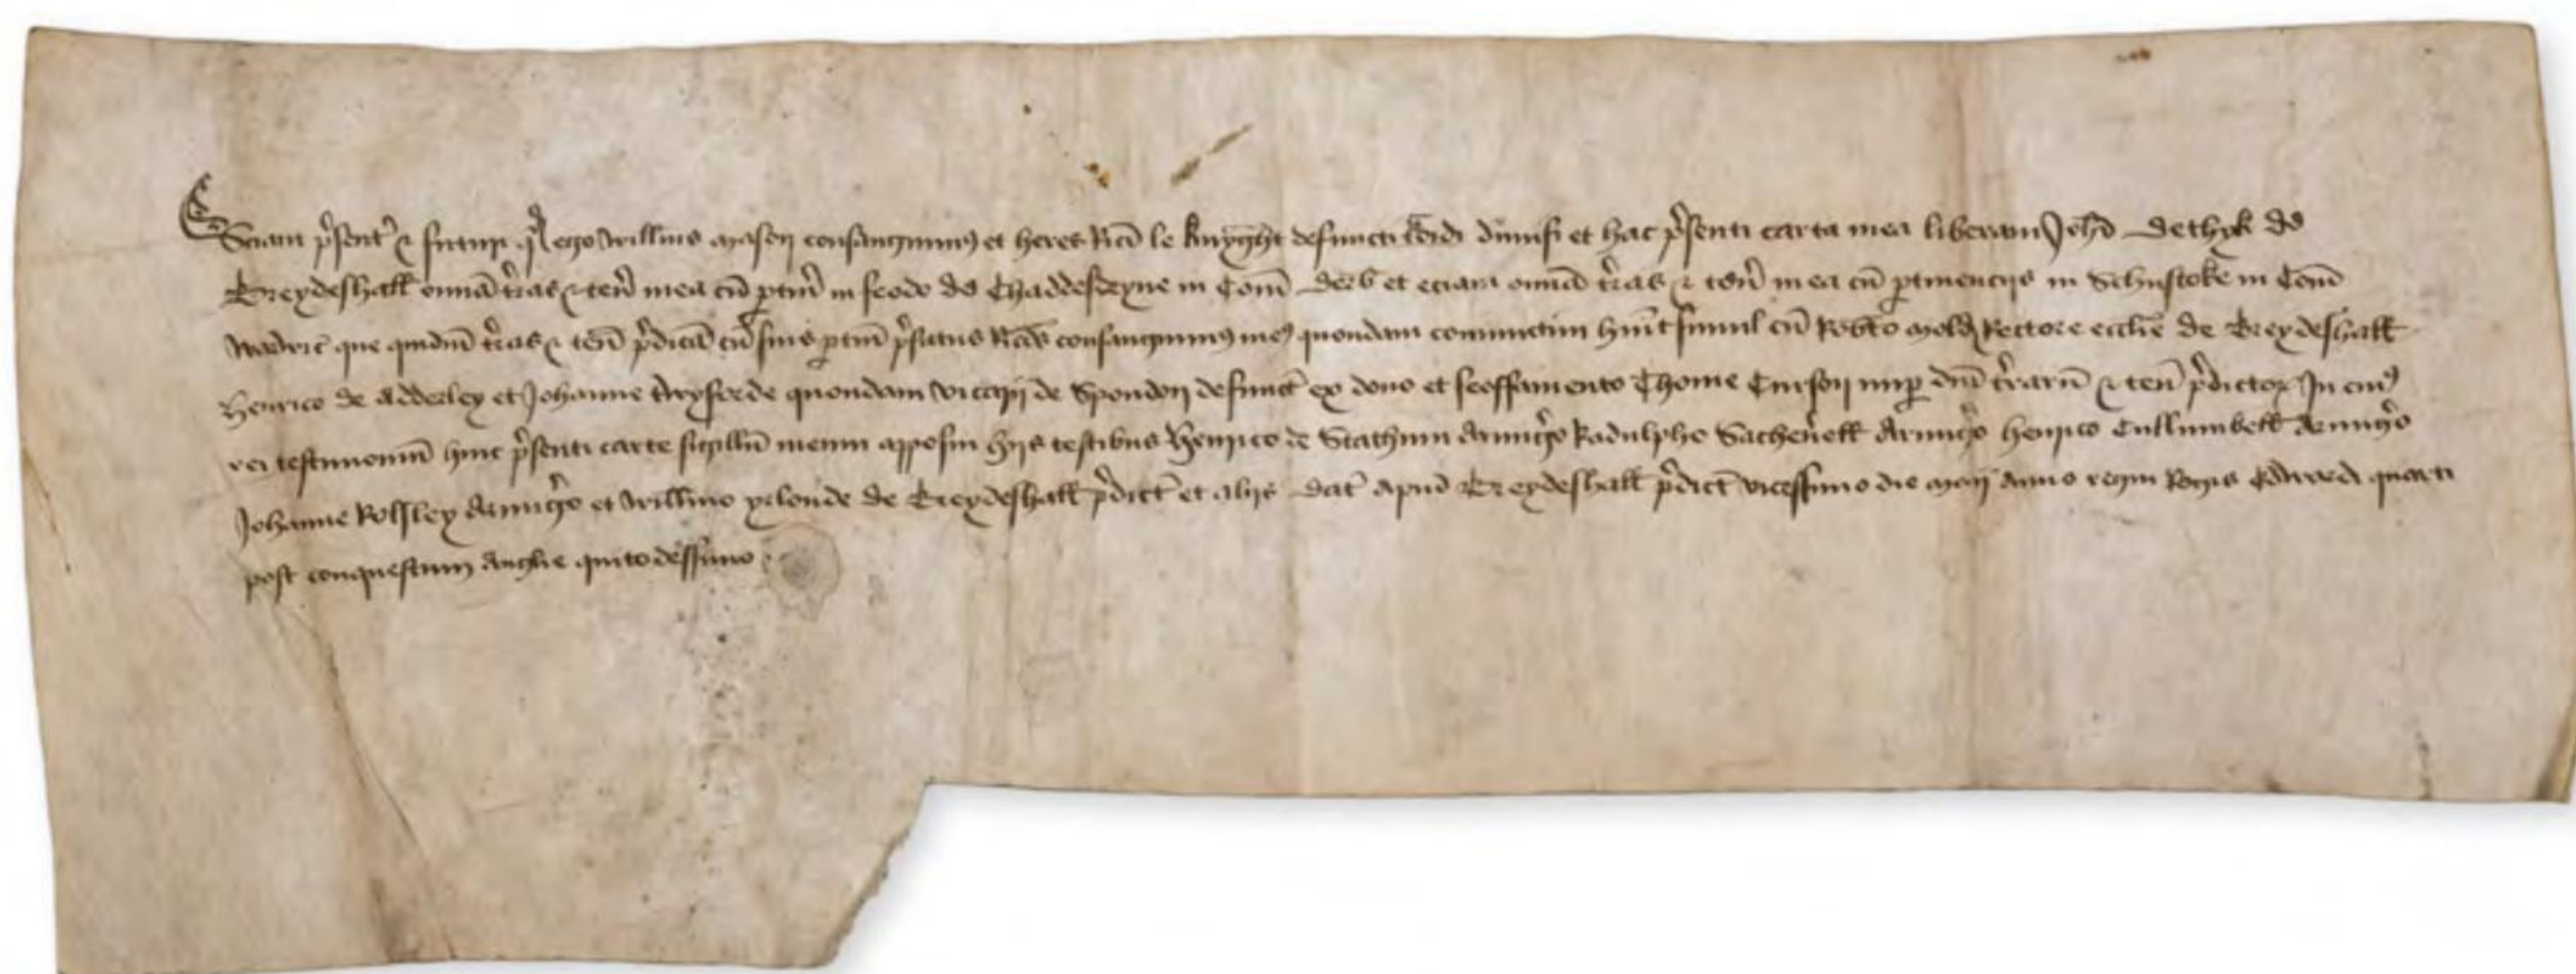 Sciant p̄sent̄ ⁊ futuri q̄d ego Willm̄s Mason consanguineus et heres Ric̄i le knyght defuncti dedi dimisi et hac p̄senti carta mea liberavi Joh̄i Dethyk de
Breydeshall om̄ia t̄ras ⁊ ten̄ mea cū ptin̄ in feodo de Chaddesdeyne in Com̄ Derb et eciam om̄ia t̄ras ⁊ ten̄ mea cū ptinencijs in Schustoke in Com̄
Warwic̄ que quidm̄ t̄ras ⁊ ten̄ p̄dicta cū suis ptin̄ p̄fatus Ric̄us consanguineus meus quondam coniunctim huit simul cū Rob̄to Mold Rectore eccl̄ie de Breydeshall
Henrico de Adderley et Johanne Twyforde quondam vicarij de Spondon defunct̄ ex dono et feoffamento Thome Curson nup dn̄i t̄rarū ⁊ ten̄ p̄dictor In cuius
rei testimoniū huic p̄senti carte sigillū meum apposui hijs testibus Henrico de Stathum Armig̃o Radulpho Sachev̄ell Armig̃o Henrico Cullumbell Armig̃o
Johanne Rolsley Armig̃o et Willm̄o de Breydeshall p̄dict̄ et alijs Dat̄ apud Breydeshall p̄dict̄ vicessimo die Maij Anno regni Regis Edwardi quarti
post conquestum Anglie quito dessimo